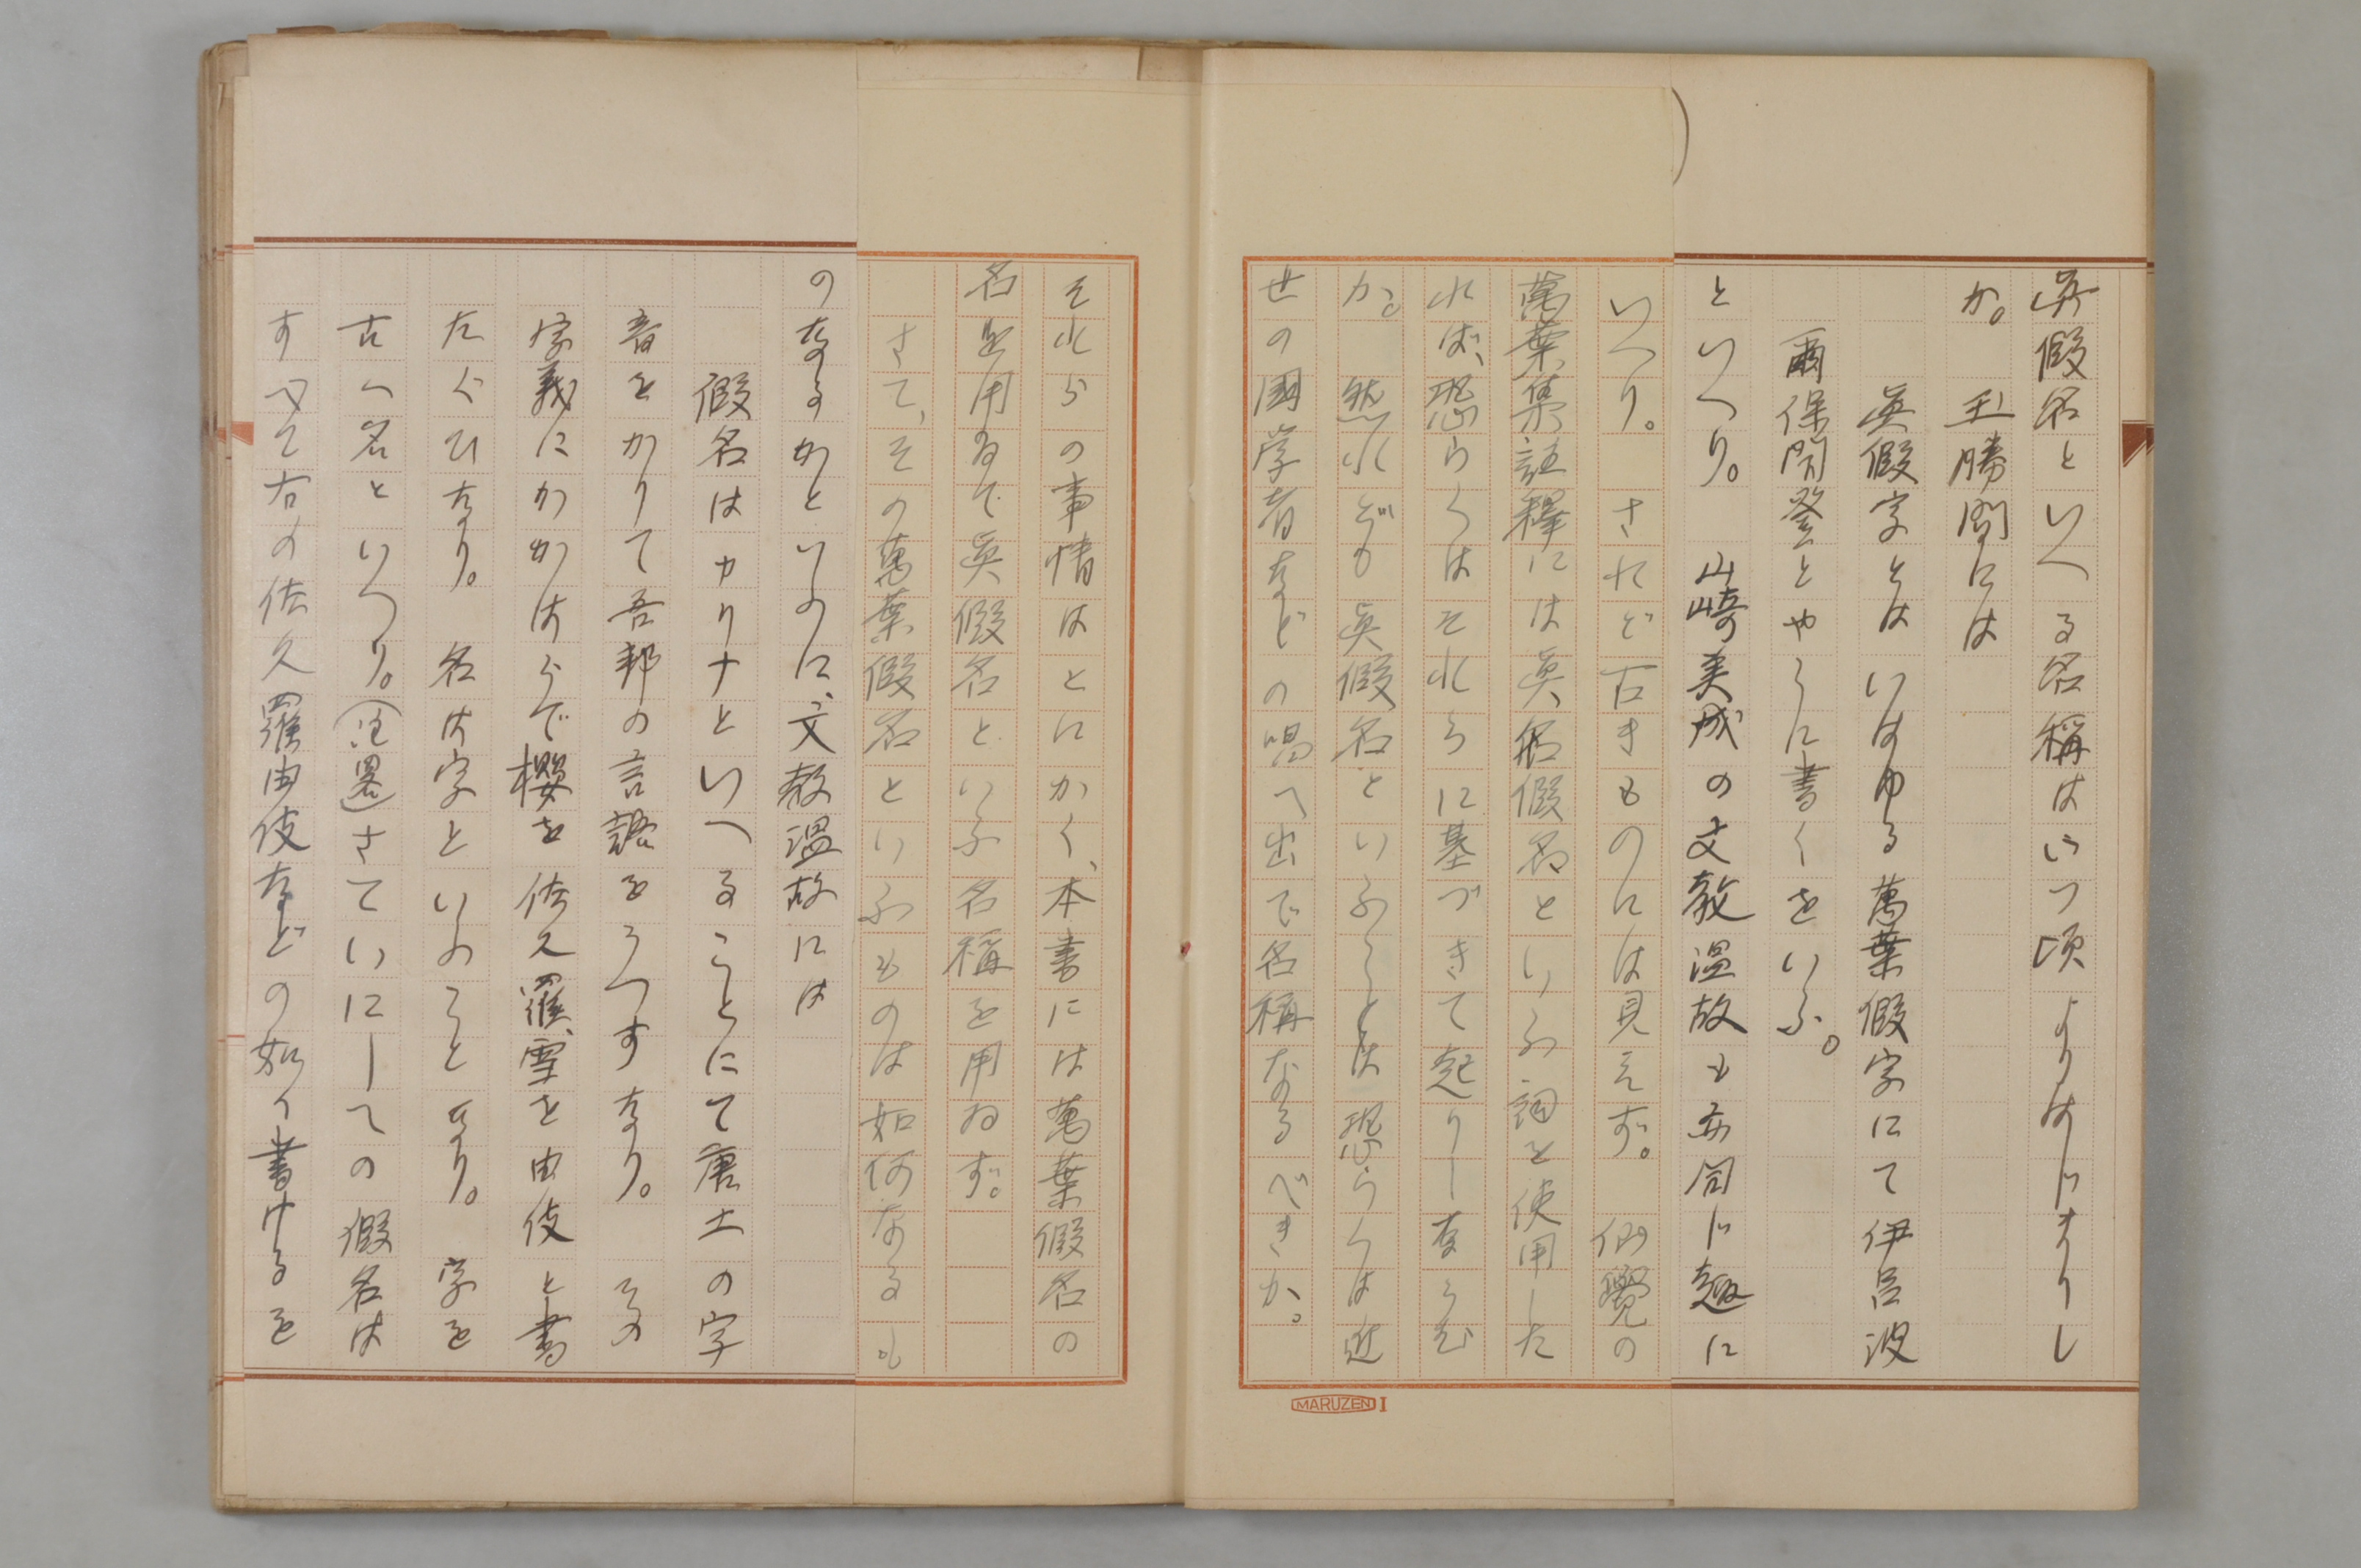 眞假名といへる名稱はいつ頃よりはじまりし
か。玉勝間には
眞假字とはいはゆる萬葉假字にて伊呂波
爾保閇登とやうに書くをいふ。
といへり。山崎美成の文教温故も亦同じ趣に
いへり。されど古きものには見えず。仙覺の
萬葉集註釋には眞名假名といふ詞を使用した
れば、恐らくはそれらに基づきて起りしならむ
か。然れども眞假名といふことは恐らくは近
世の國学者などの唱へ出で名稱なるべきか。
MARUZEN I
それらの事情はとにかく、本書には萬葉假名の
名を用ゐて眞假名といふ名稱を用ゐず。
さて、その萬葉假名といふものは如何なるも
のなるかといふに、文教温故には
假名はカリナといへることにて唐土の字
音をかりて吾邦の言語をうつすなり。その
字義にかかはらで櫻を佐久羅、雪を由伎と書
たぐひなり。名は字といふことなり。字を
古へ名といへり。（注畧）さていにしへの假名は
すべて右の佐久羅由伎などの如く書けるを